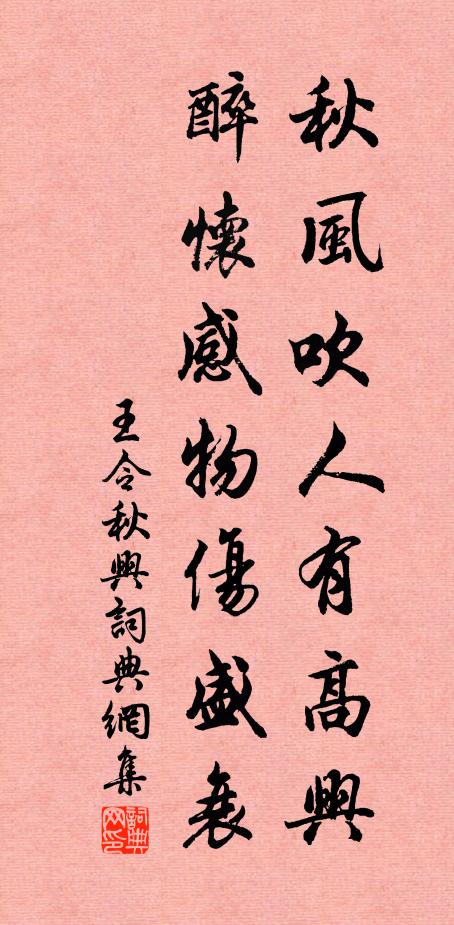 秋風吹人有高興
醉懷感物傷盛衰
王令秋興詞典網集
詞典網印